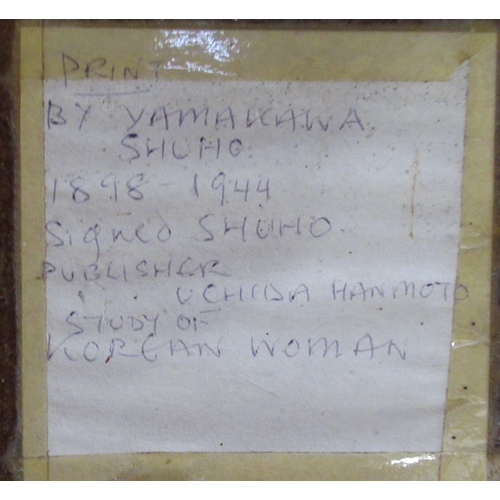 PRINT
BY YAMAKAWA
SHUHO
1898-1944
Signed SHUHO
PUBLISHER
UCHIDA HANMOTO
STUDY OF
KOREAN WOMAN